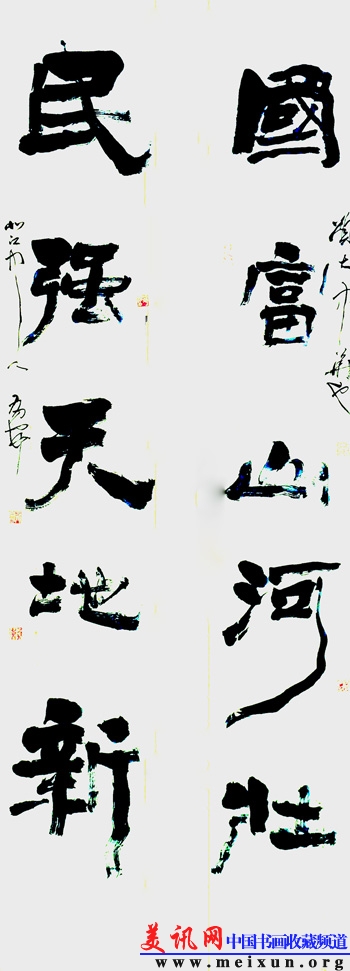 國富山河壯
民强天地新
美讯网 中国书画收藏频道
www.meixun.org